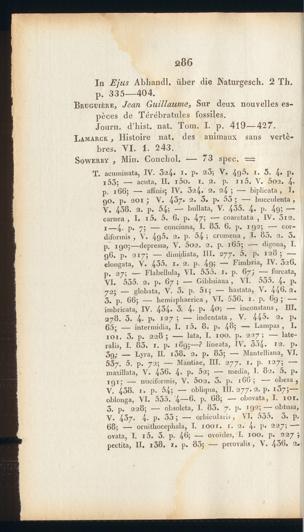 286
In Ejus Abhandl. über die Naturgesch. 2 Th.
p. 335—404.
BRUGUIÈRE, Jean Guillaume, Sur deux nouvelles es-
pèces de Térébratules fossiles.
Journ. d'hist. nat. Tom. I. p. 419—427.
LAMARCK, Histoire nat. des animaux sans vertè-
bres. VI. 1. 243.
SOWERBY, Min. Conchol. — 73 spec. =
T. acuminata, IV. 324. 1. p. 23; V. 495. 1. 3. 4. p.
153; — acuta, II. 150. 1. 2. p. 115. V. 502. 4.
p. 166; — affinis, IV. 324. 2. 24; — biplicata, I.
90. p. 201; V. 437. 2. 3. p. 53; — bucculenta,
V. 438. 2. p. 54; — bullata, V. 435. 4. p. 49; —
carnea, I. 15. 5. 6. p. 47; — coarctata, IV. 312.
1—4. p. 7; — concinna, I. 83. 6. p. 192; — cor-
diformis, V. 495. 2. p. 54; crumena, I. 83. 2. 3.
p. 190; — depressa, V. 502. 2. p. 165; — digona, I.
96. p. 217; — dimidiata, III. 277. 5. p. 128; —
elongata, V. 435. 1. 2. p. 49; — Fimbria, IV. 326.
p. 27; — Flabellula, VI. 535. 1. p. 67; — furcata,
VI. 535. 2. p. 67; — Gibbsiana, VI. 535. 4. p.
72; — globata, V. 3. p. 51; — hastata, V. 446. 2.
3. p. 66; — hemisphaerica, VI. 536. 1. p. 69; —
imbricata, IV. 434. 3. 4. p. 40; — inconstans, III.
278. 3. 4. p. 127; — indentata, V. 445. 2. p.
65; — intermedia, I. 15. 8. p. 48; — Lampas, I.
101. 3. p. 228; — lata, I. 100. p. 227; — late-
ralis, I. 83. 1. p. 189; — lineata, IV. 334. 12. p.
39; — Lyra, II. 138. 2. p. 83; — Mantelliana, VI.
537. 5. p. 72; — Mantiae, III. 277. 1. p. 127; —
maxillata, V. 436. 4. p. 52; — media, I. 82. 5. p.
191; — nuciformis, V. 502. 3. p. 166; — obesa,
V. 438. 1. p. 54; — obliqua, III. 277. 2. p. 137; —
oblonga, VI. 535. 4—6. p. 68; — obovata, I. 101.
3. p. 228; — obsoleta, I. 83. 7. p. 192; — obtusa,
V. 437. 4. p. 53; — orbicularis, VI. 535. 3. p.
68; — ornithocephala, I. 1001. 1. 2. 4. p. 227; —
ovata, I. 15. 3. p. 46; — ovoides, I. 100. p. 227;
pectita, II. 138. 1. p. 83; — perovalis, V. 436. 2.